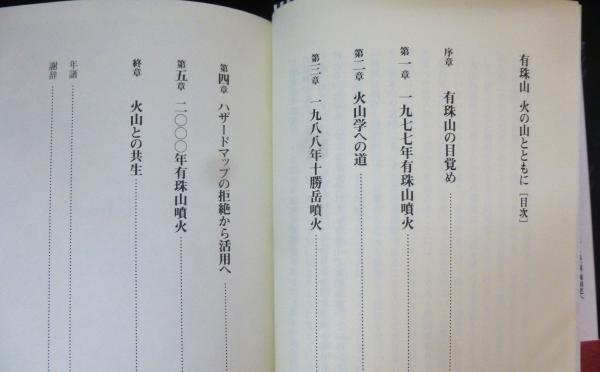 有珠山 火の山とともに [目次]
序章 有珠山の目覚め
第一章 一九七七年有珠山噴火
第二章 火山学への道
第三章 一九八八年十勝岳噴火
第四章 ハザードマップの拒絶から活用へ
第五章 二〇〇〇年有珠山噴火
終章 火山との共生
年譜
謝辞